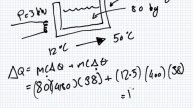 P=3kW
80 kg
12°C → 50°C
ΔQ = mcΔθ + mcΔθ
= (80)(4180)(38) + (12.5)(400)(38)
= 1